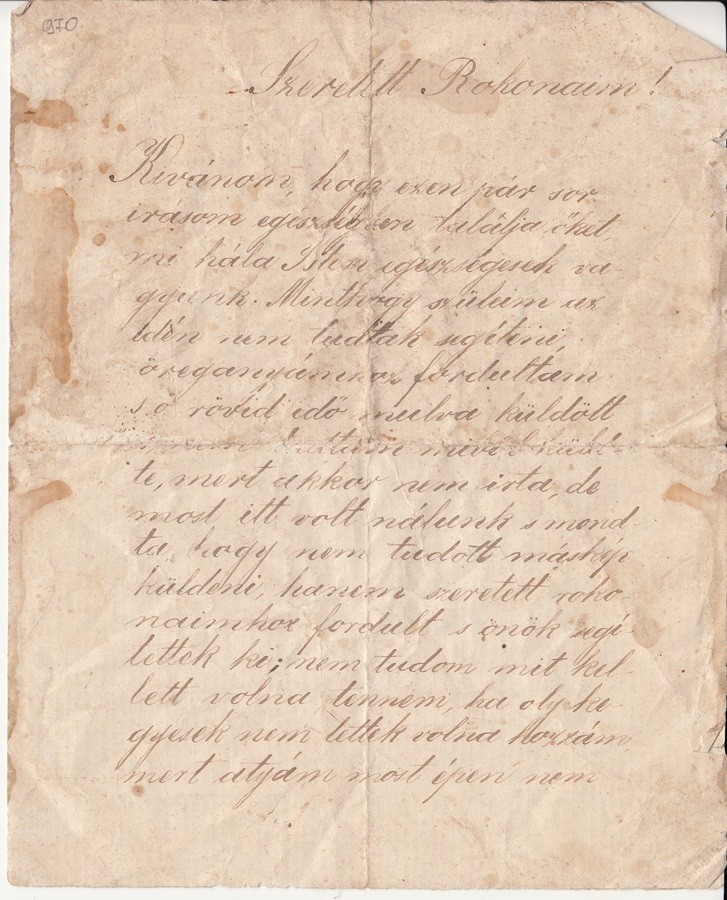 970.
Szeretett Rokonaim!
Kivánom, hogy ezen pár sor
irásom egészségben találja őket,
mi hála Isten egészségesek va-
gyunk. Minthogy szüleim az
idén nem tudtak segíteni,
öreganyámhoz fordultam
s ő rövid idő mulva küldött
nem tudtam miből küld-
te, mert akkor nem irta, de
most itt volt nálunk s mond-
ta, hogy nem tudott máskép
küldeni, hanem szeretett roko-
naimhoz fordult s önök segí-
lettek ki; nem tudom mit kel-
lett volna tennem, ha oly ke-
gyesek nem lettek volna hozzám,
mert atyám most épen nem